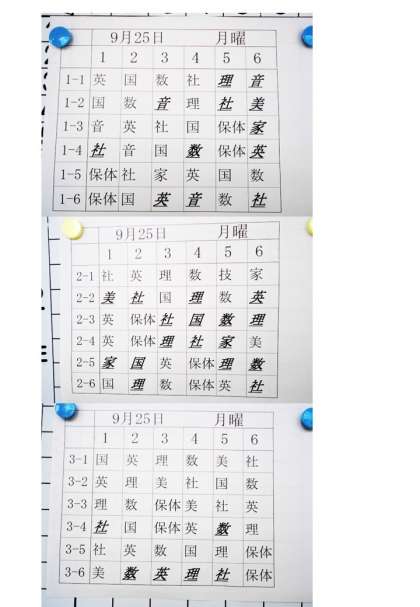 9月25日 月曜
1 2 3 4 5 6
1-1 英 国 数 社 理 音
1-2 国 数 音 理 社 美
1-3 音 英 社 国 保体 家
1-4 社 音 国 数 保体 英
1-5 保体 社 家 英 国 数
1-6 保体 国 英 音 数 社
9月25日 月曜
1 2 3 4 5 6
2-1 社 英 理 数 技 家
2-2 美 社 国 理 数 英
2-3 英 保体 社 国 数 理
2-4 英 保体 理 社 家 美
2-5 家 国 英 保体 理 数
2-6 国 理 数 保体 英 社
9月25日 月曜
1 2 3 4 5 6
3-1 国 英 理 数 美 社
3-2 英 理 美 社 国 数
3-3 理 数 保体 美 社 英
3-4 社 国 保体 英 数 理
3-5 社 英 数 国 理 保体
3-6 美 数 英 理 社 保体